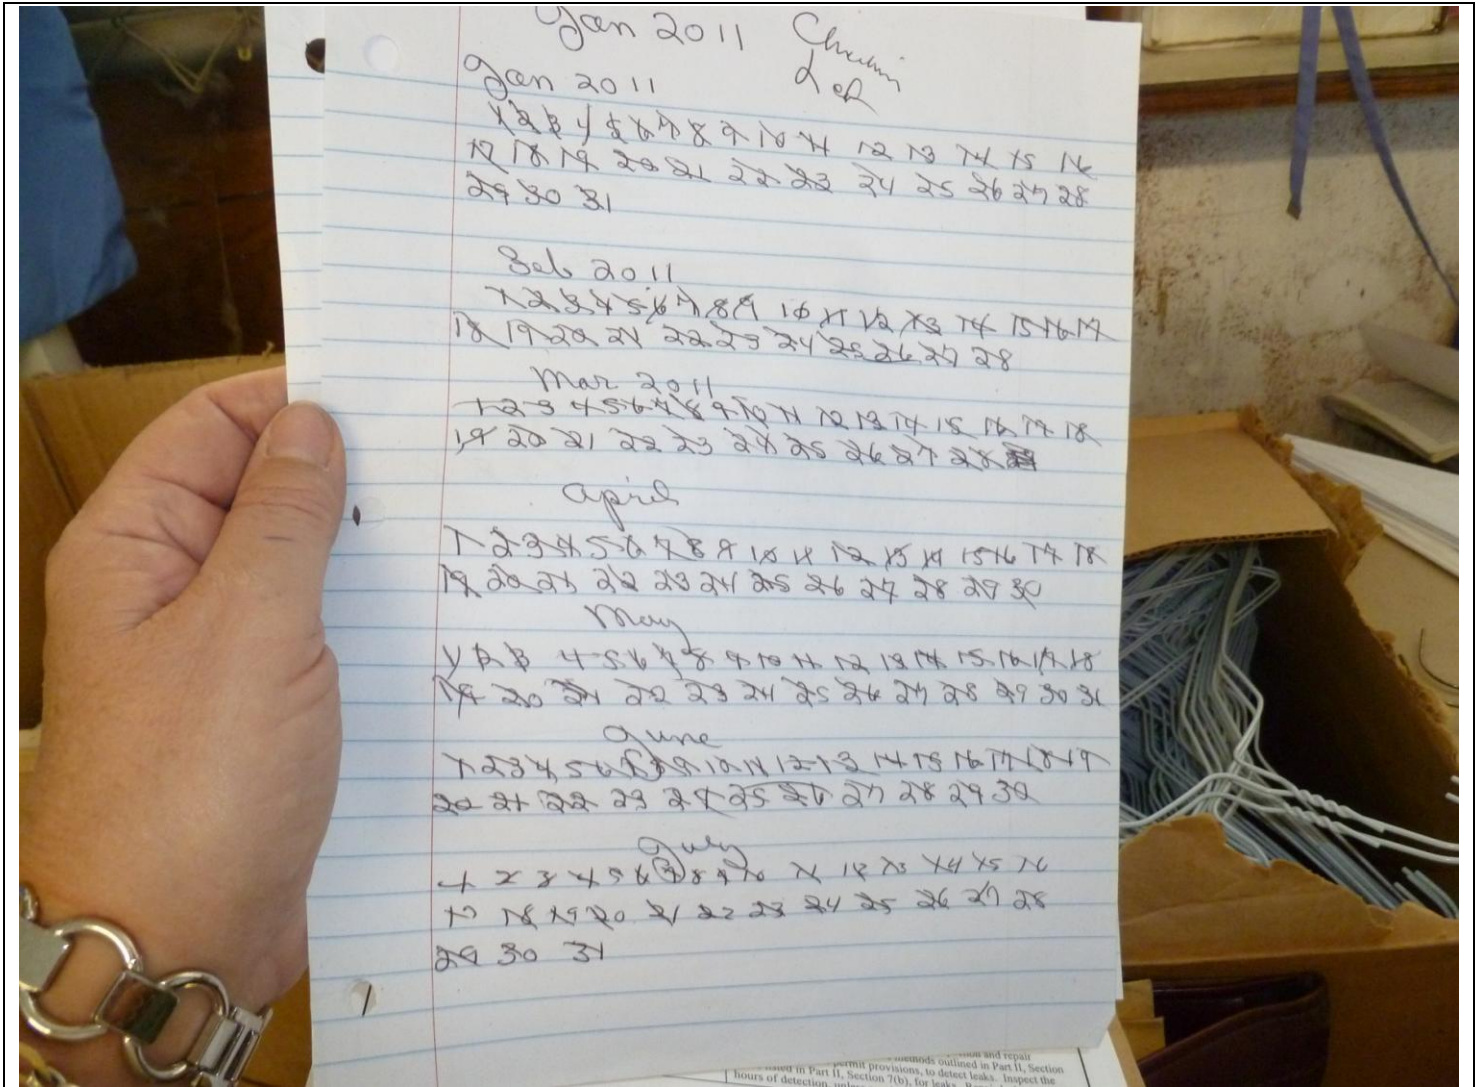 Jan 2011
Jan 2011
1 2 3 4 5 6 7 8 9 10 11 12 13 14 15 16
17 18 19 20 21 22 23 24 25 26 27 28
29 30 31
Feb 2011
1 2 3 4 5 6 7 8 9 10 11 12 13 14 15 16 17
18 19 20 21 22 23 24 25 26 27 28
Mar 2011
1 2 3 4 5 6 7 8 9 10 11 12 13 14 15 16 17 18
19 20 21 22 23 24 25 26 27 28
April
1 2 3 4 5 6 7 8 9 10 11 12 13 14 15 16 17 18
19 20 21 22 23 24 25 26 27 28 29 30
May
1 2 3 4 5 6 7 8 9 10 11 12 13 14 15 16 17 18
19 20 21 22 23 24 25 26 27 28 29 30 31
June
1 2 3 4 5 6 8 9 10 11 12 13 14 15 16 17 18 19
20 21 22 23 24 25 26 27 28 29 30
July
1 2 3 4 5 6 7 8 9 10 11 12 13 14 15 16
17 18 19 20 21 22 23 24 25 26 27 28
29 30 31
and repair
methods outlined in Part II, Section
in Part II, Section 7(b), for leaks.
permit provisions, to detect leaks. Inspect the
hours of detection